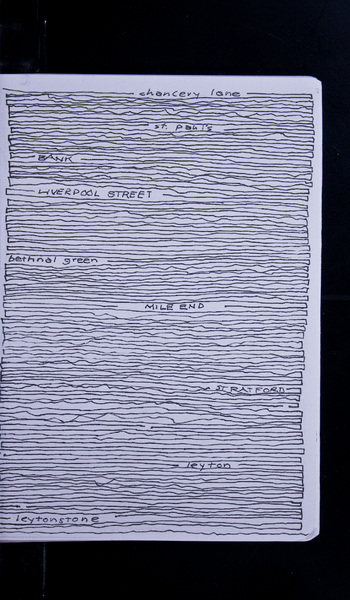 chancery lane
st. paul's
BANK
LIVERPOOL STREET
bethnal green
MILE END
STRATFORD
leyton
leytonstone